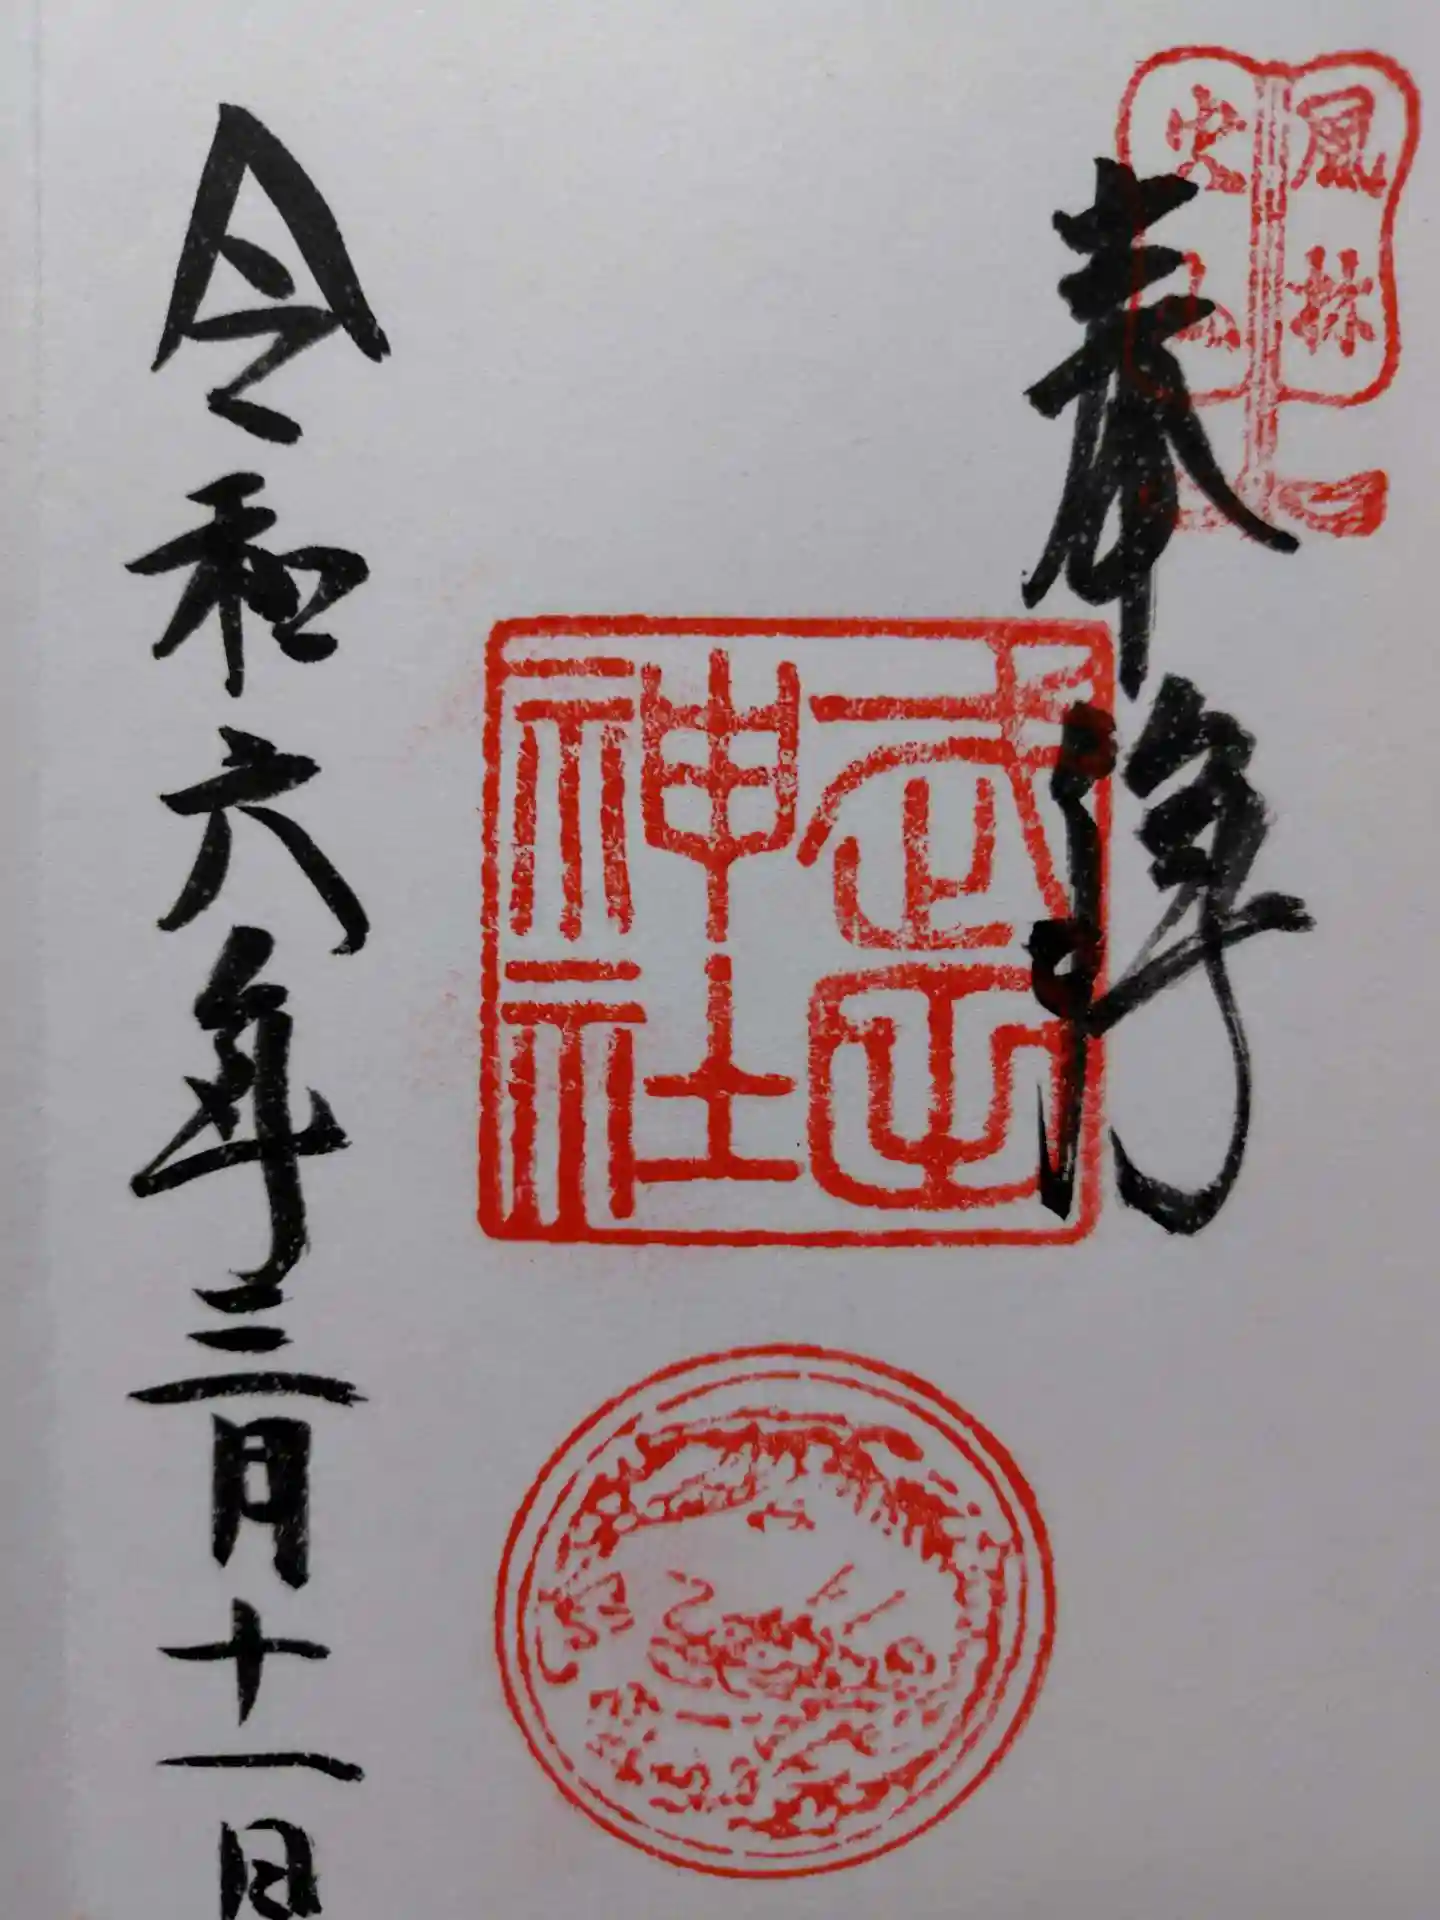 風林
火山
奉拝
武田
神社
令和六年三月十一日